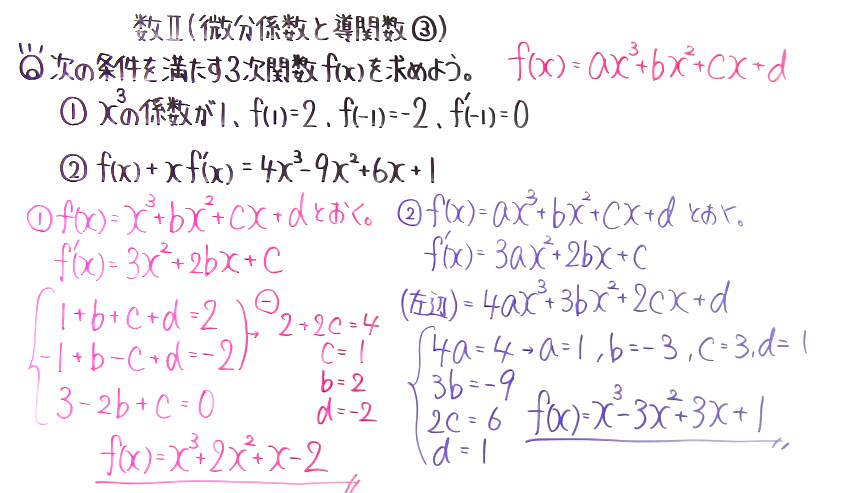 数Ⅱ(微分係数と導関数③)
次の条件を満たす3次関数f(x)を求めよう。 f(x)=ax³+bx²+cx+d
① x³の係数が1、f(1)=2、f(-1)=-2、f'(-1)=0
② f(x)+xf'(x)=4x³-9x²+6x+1
① f(x)=x³+bx²+cx+dとおく。
f'(x)=3x²+2bx+c
1+b+c+d=2
-1+b-c+d=-2
→ ⊖ 2+2c=4
c=1
b=2
d=-2
3-2b+c=0
f(x)=x³+2x²+x-2
② f(x)=ax³+bx²+cx+d とおく。
f'(x)=3ax²+2bx+c
(左辺)=4ax³+3bx²+2cx+d
4a=4→a=1,b=-3,c=3,d=1
3b=-9
2c=6
d=1
f(x)=x³-3x²+3x+1